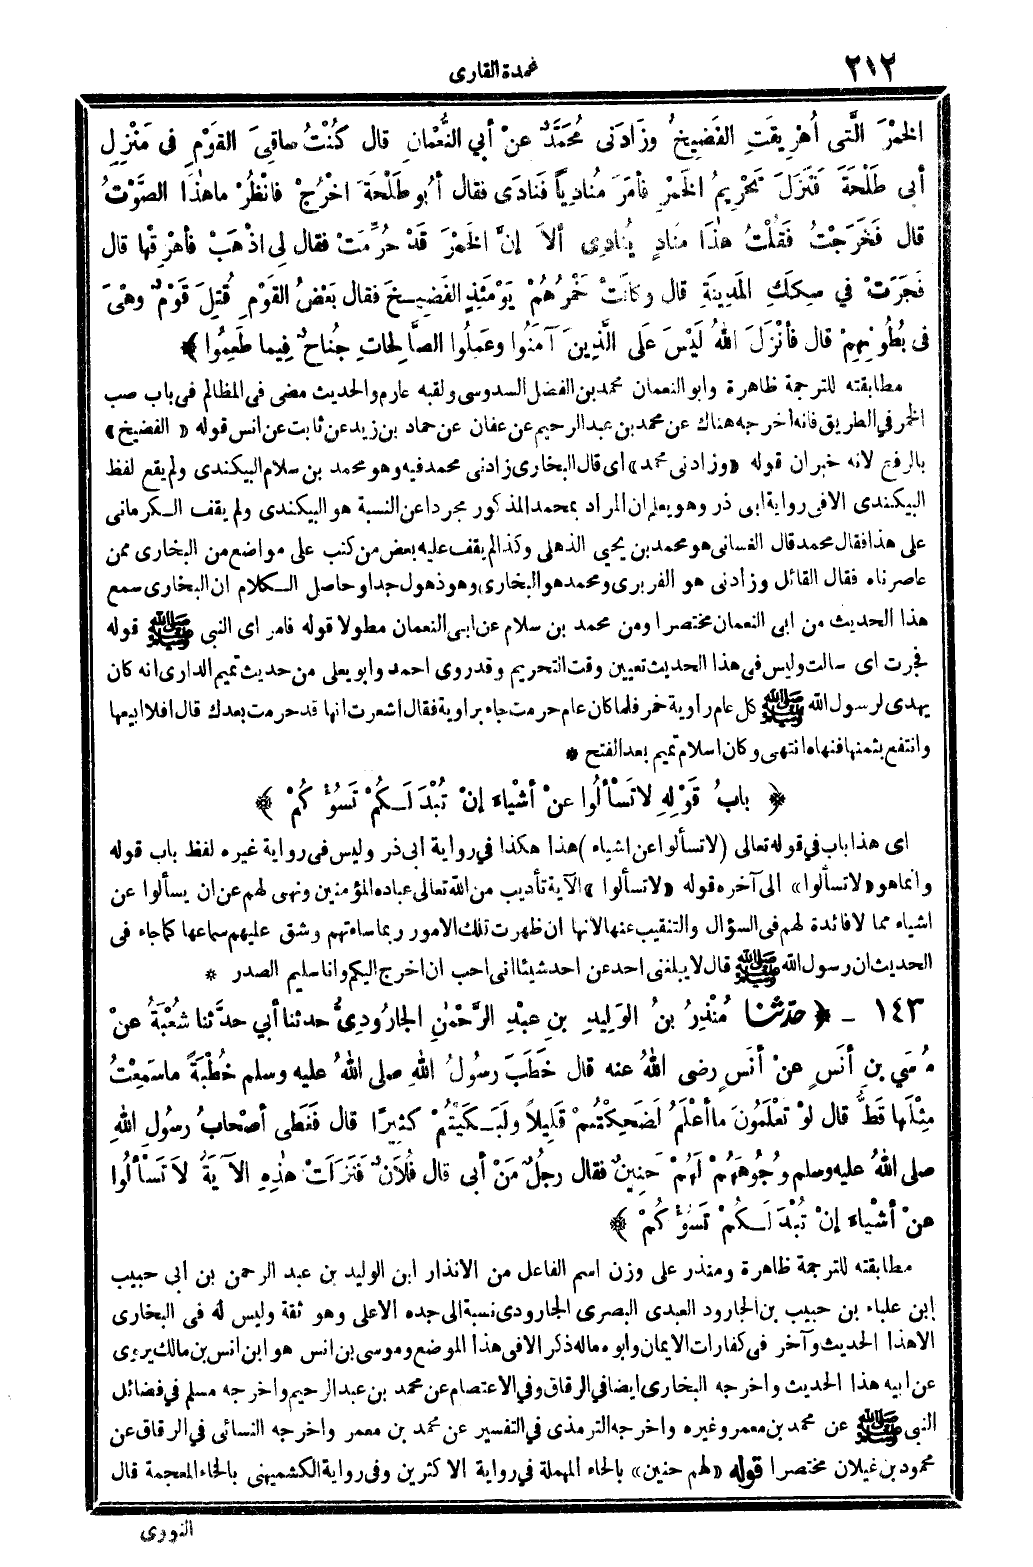 ٢١٢
عمدة القارى
الخَمْرَ الَّتى أُهْرِيقَتِ الفَضِيخُ وزَادَنى مُحَمَّدٌ عنْ أبي النُّعْمانِ قال كُنْتُ ساقِىَ القَوْمِ فى مَنْزِلِ
أبى طَلْحَةَ فَنَزَلَ تَحْرِيمُ الخَمْرِ فأمَرَ مُنادِياً فَنادَى فقال أبُو طَلْحَةَ اخْرُجْ فانْظُرْ ماهٰذَا الصَّوْتُ
قال فَخَرَجْتُ فَقُلْتُ هٰذَا منادٍ يُنادِى ألاَ إنَّ الخَمْرَ قَدْ حُرِّمَتْ فقال لِى اذْهَبْ فأهْرِقْها قال
فَجَرَتْ في سِكَكِ المَدِينَةِ قال وكانَتْ خَمْرُهُمْ يَوْمَئِذٍ الفَضِيخَ فقال بَعْضُ القَوْمِ قُتِلَ قَوْمٌ وهْىَ
فى بُطُونِهِمْ قال فأنْزَلَ اللهُ لَيْسَ عَلَى الَّذِينَ آمَنُوا وعَمِلُوا الصَّالِحَاتِ جُناحٌ فِيما طَعِمُوا ﴾
مطابقته للترجمة ظاهرة وابو النعمان محمد بن الفضل السدوسى ولقبه عارم والحديث مضى فى المظالم فى باب صب
الخمر في الطريق فانه اخرجه هناك عن محمد بن عبد الرحيم عن عفان عن حماد بن زيد عن ثابت عن انس قوله « الفضيخ»
بالرفع لانه خبر ان قوله «وزادنى محمد» اى قال البخارى زادنى محمد فيه وهو محمد بن سلام البيكندى ولم يقع لفظ
البيكندى الا فى رواية ابى ذر وهو يعلم ان المراد بمحمد المذكور مجردا عن النسبة هو البيكندى ولم يقف الكرمانى
على هذا فقال محمد قال الغسانى هو محمد بن يحيى الذهلى وكذا لم يقف عليه بعض من كتب على مواضع من البخارى ممن
عاصرناه فقال القائل وزادنى هو الفربرى ومحمد هو البخارى وهو ذهول جدا وحاصل الكلام ان البخارى سمع
هذا الحديث من ابى النعمان مختصرا ومن محمد بن سلام عن ابى النعمان مطولا قوله فامر اى النبى ﷺ قوله
فجرت اى سالت وليس فى هذا الحديث تعيين وقت التحريم وقد روى احمد وابو يعلى من حديث تميم الدارى انه كان
يهدى لرسول الله ﷺ كل عام راوية خمر فلما كان عام حرمت جاء براوية فقال اشعرت انها قد حرمت بعدك قال افلا ابيعها
وانتفع بثمنها فنهاه انتهى وكان اسلام تميم بعد الفتح *
﴿ بابُ قَوْلِهِ لاَتَسْألُوا عنْ أشْياءَ إنْ تُبْدَ لَكُمْ تَسُؤْكُمْ ﴾
اى هذا باب في قوله تعالى (لا تسألوا عن اشياء) هذا هكذا في رواية ابى ذر وليس فى رواية غيره لفظ باب قوله
وانما هو «لا تسألوا» الى آخره قوله «لا تسألوا» الآية تأديب من الله تعالى عباده المؤمنين ونهى لهم عن ان يسألوا عن
اشياء مما لا فائدة لهم فى السؤال والتنقيب عنها لانها ان ظهرت تلك الامور ربما ساءتهم وشق عليهم سماعها كما جاء فى
الحديث ان رسول الله ﷺ قال لا يبلغنى احد عن احد شيئا انى احب ان اخرج اليكم وانا سليم الصدر *
١٤٣ - ﴿ حدّثنا مُنْذِرُ بنُ الوَلِيدِ بنِ عبْدِ الرَّحْمٰنِ الجارُودِىُّ حدثنا أبي حدَّثنا شُعْبَةُ عنْ
مُوسَي بنِ أنَسٍ عنْ أنَسٍ رضى اللهُ عنه قال خَطَبَ رسولُ اللهِ صلى اللهُ عليه وسلم خُطْبَةً ماسَمِعْتُ
مِثْلَها قَطُّ قال لوْ تَعْلَمُونَ ما أعْلَمُ لَضَحِكْتُمْ قَلِيلاً ولَبَكَيْتُمْ كَثِيرًا قال فَغَطَّى أصْحابُ رسولِ اللهِ
صلى اللهُ عليه وسلم وُجُوهَهُمْ لَهُمْ حَنِينٌ فقال رجُلٌ مَنْ أبى قال فُلاَنٌ فَنَزَلَتْ هٰذِهِ الآيَةُ لاَتَسْألُوا
عنْ أشْياءَ إنْ تُبْدَ لَكُمْ تَسُؤْكُمْ ﴾
مطابقته للترجمة ظاهرة ومنذر على وزن اسم الفاعل من الانذار ابن الوليد بن عبد الرحمن بن أبى حبيب
إبن علباء بن حبيب بن الجارود العبدى البصرى الجارودى نسبة الى جده الاعلى وهو ثقة وليس له فى البخارى
الا هذا الحديث وآخر فى كفارات الايمان وابوه ماله ذكر الا فى هذا الموضع وموسى بن انس هو ابن انس بن مالك يروى
عن ابيه هذا الحديث واخرجه البخارى ايضا في الرقاق وفي الاعتصام عن محمد بن عبد الرحيم واخرجه مسلم في فضائل
النبى ﷺ عن محمد بن معمر وغيره واخرجه الترمذى في التفسير عن محمد بن معمر واخرجه النسائى في الرقاق عن
محمود بن غيلان مختصرا قوله «لهم حنين» بالحاء المهملة في رواية الاكثرين وفى رواية الكشميهنى بالخاء المعجمة قال
النووى